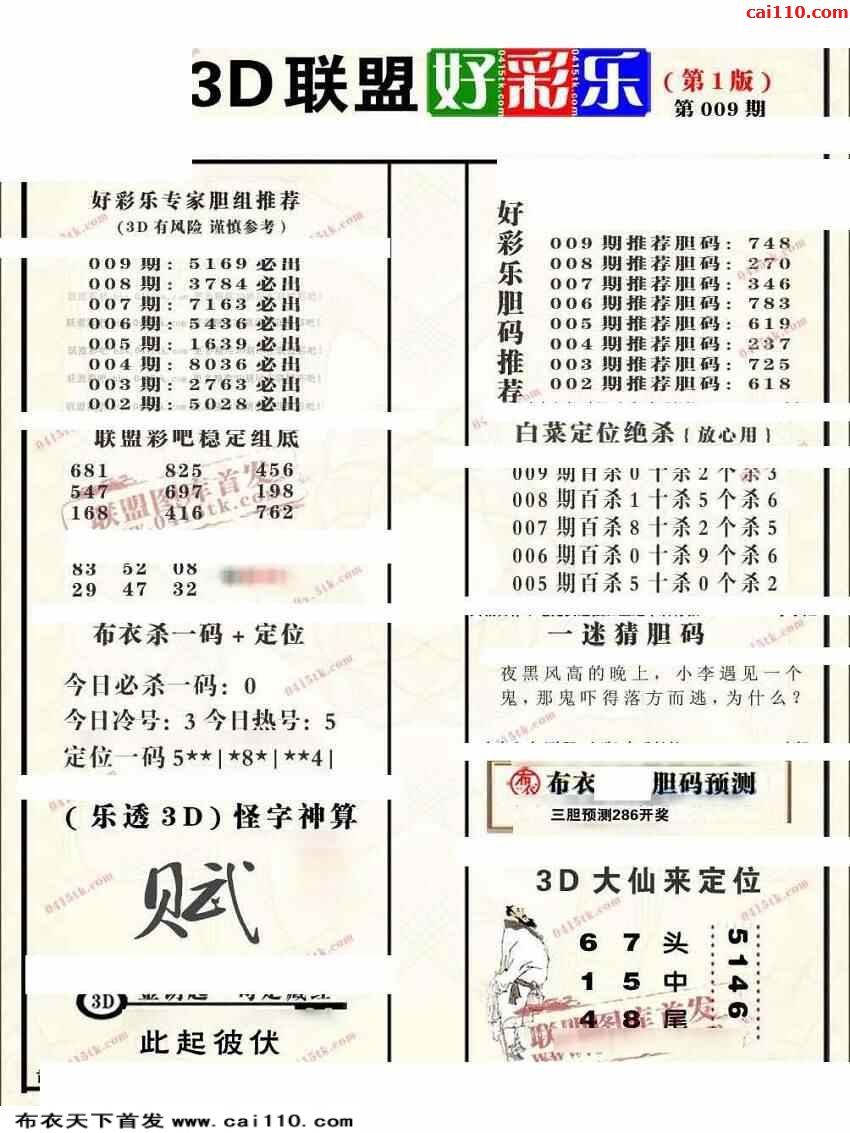 cai110.com
3D联盟好彩乐
(第1版)
第 009 期
好彩乐专家胆组推荐
(3D 有风险 谨慎参考)
009 期: 5169 必出
008 期: 3784 必出
007 期: 7163 必出
006 期: 5436 必出
005 期: 1639 必出
004 期: 8036 必出
003 期: 2763 必出
002 期: 5028 必出
联盟彩吧稳定组底
681 825 456
547 697 198
168 416 762
83 52 08
29 47 32
布衣杀一码 + 定位
今日必杀一码: 0
今日冷号: 3 今日热号: 5
定位一码 5**|*8*|**4|
(乐透 3D) 怪字神算
赋
3D
此起彼伏
好彩乐胆码推荐
009 期推荐胆码: 748
008 期推荐胆码: 270
007 期推荐胆码: 346
006 期推荐胆码: 783
005 期推荐胆码: 619
004 期推荐胆码: 237
003 期推荐胆码: 725
002 期推荐胆码: 618
白菜定位绝杀 { 放心用 }
009 期百杀 0 十杀 2 个杀 3
008 期百杀 1 十杀 5 个杀 6
007 期百杀 8 十杀 2 个杀 5
006 期百杀 0 十杀 9 个杀 6
005 期百杀 5 十杀 0 个杀 2
一迷猜胆码
夜黑风高的晚上, 小李遇见一个
鬼, 那鬼吓得落方而逃, 为什么?
布衣 胆码预测
三胆预测286开奖
3D 大仙来定位
6 7 头
1 5 中
4 8 尾
5146
联盟图库首发
布衣天下首发 www.cai110.com